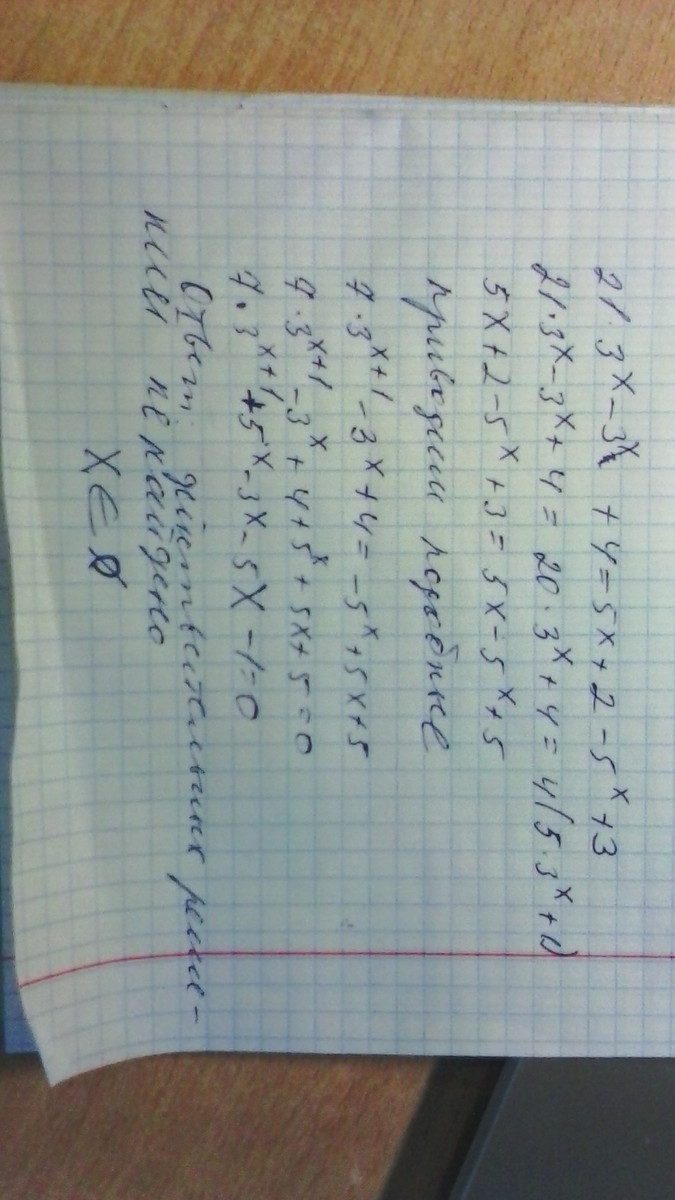 21·3ˣ-3ˣ+4=5x+2-5ˣ+3
21·3ˣ-3ˣ+4=20·3ˣ+4=4(5·3ˣ+1)
5x+2-5ˣ+3=5x-5ˣ+5
приводим подобные
7·3ˣ⁺¹-3ˣ+4=-5ˣ+5x+5
7·3ˣ⁺¹-3ˣ+4+5ˣ+5x+5=0
7·3ˣ⁺¹+5ˣ-3ˣ-5x-1=0
Ответ: действительных реше-
ний не найдено
x∈∅